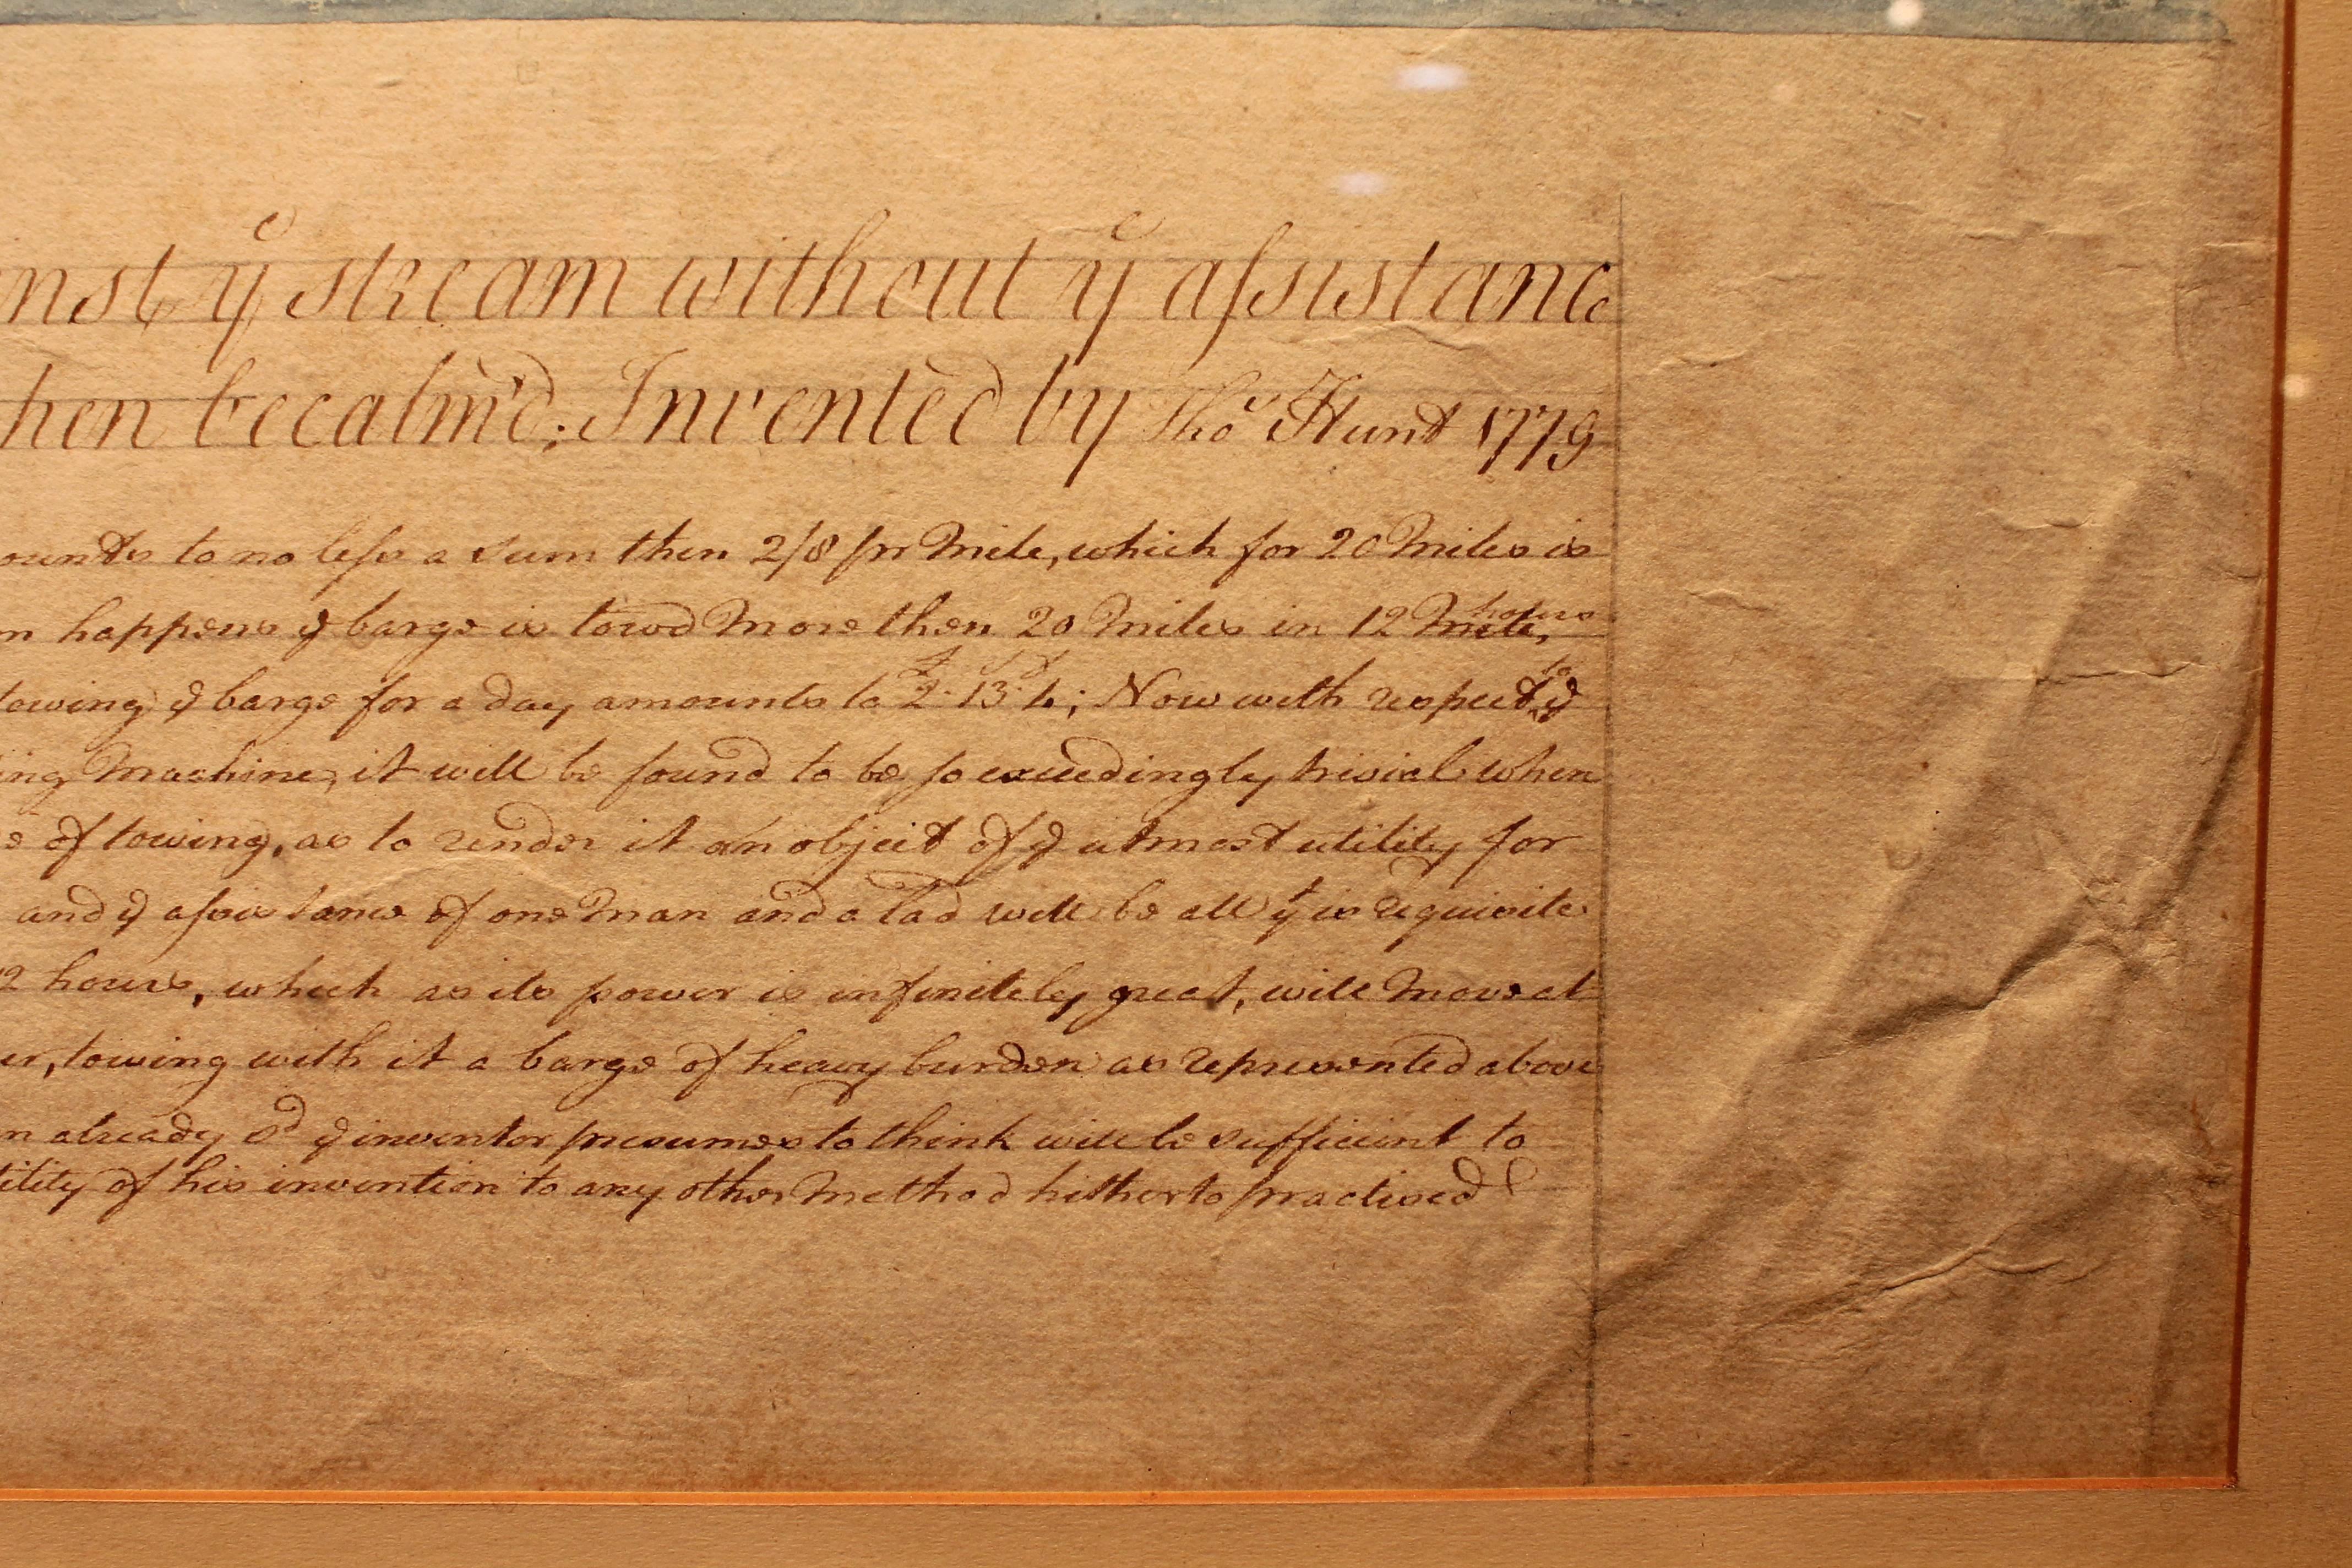 nst yͤ stream without yͤ assistanc
hen becalm'd; Invented by Thoˢ Hunt 1779
ounts to no less a sum then 2/8 pr Mile, which for 20 Miles is
n happens yͤ barge is towd More then 20 Miles in 12 Mile, hours
towing yͤ barge for a day amounts to £2·13ˢ·4ᵈ; Now with respect to yͤ
ing Machine, it will be found to be so exceedingly trivial when
e of towing, as to render it an object of yͤ utmost utility for
and yͤ assistance of one Man and a lad will be all yᵗ is requisite
2 hours, which as its power is infinitely great, will Move at
er, towing with it a barge of heavy burden as represented above
n already sᵈ yͤ inventor presumes to think will be sufficient to
tility of his invention to any other Method hitherto practised